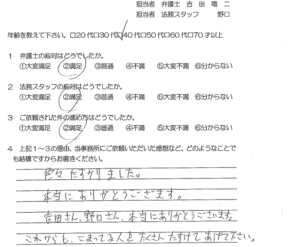 担当者 弁護士 吉田竜二
担当者 法務スタッフ 野口
年齢を教えて下さい。□20代□30代□40代□50代□60代□70才以上
1 弁護士の応対はどうでしたか。
①大変満足 ②満足 ③普通 ④不満 ⑤大変不満 ⑥分からない
2 法務スタッフの応対はどうでしたか。
①大変満足 ②満足 ③普通 ④不満 ⑤大変不満 ⑥分からない
3 ご依頼された件の進め方はどうでしたか。
①大変満足 ②満足 ③普通 ④不満 ⑤大変不満 ⑥分からない
4 上記1～3の理由、当事務所にご依頼いただいた感想など、どのようなことで
も結構ですからお書きください。
色々たすかりました。
本当にありがとうございます。
吉田さん、野口さん、本当にありがとうございます。
これからも、こまってる人をたくさんたすけてあげて下さい。